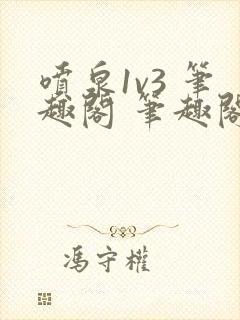 噴泉1v3 筆
趣閣 筆趣閣
馮守權